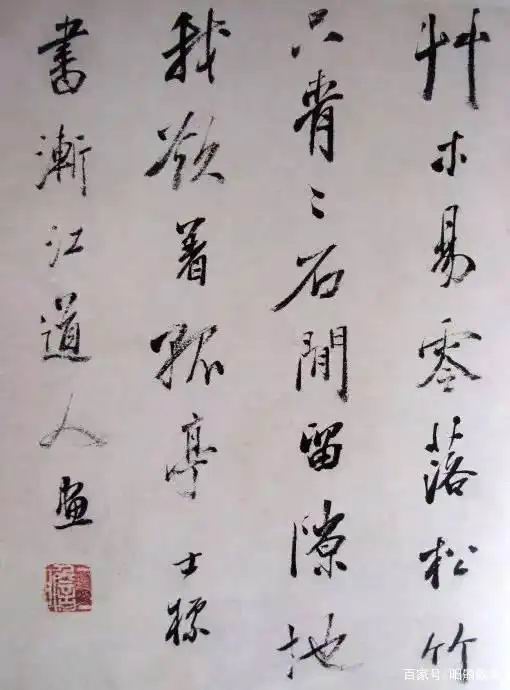 艸木易零落松竹
只青〻石間留隙地
我欲着孤亭 士標
書漸江道人画
百家号/昭明